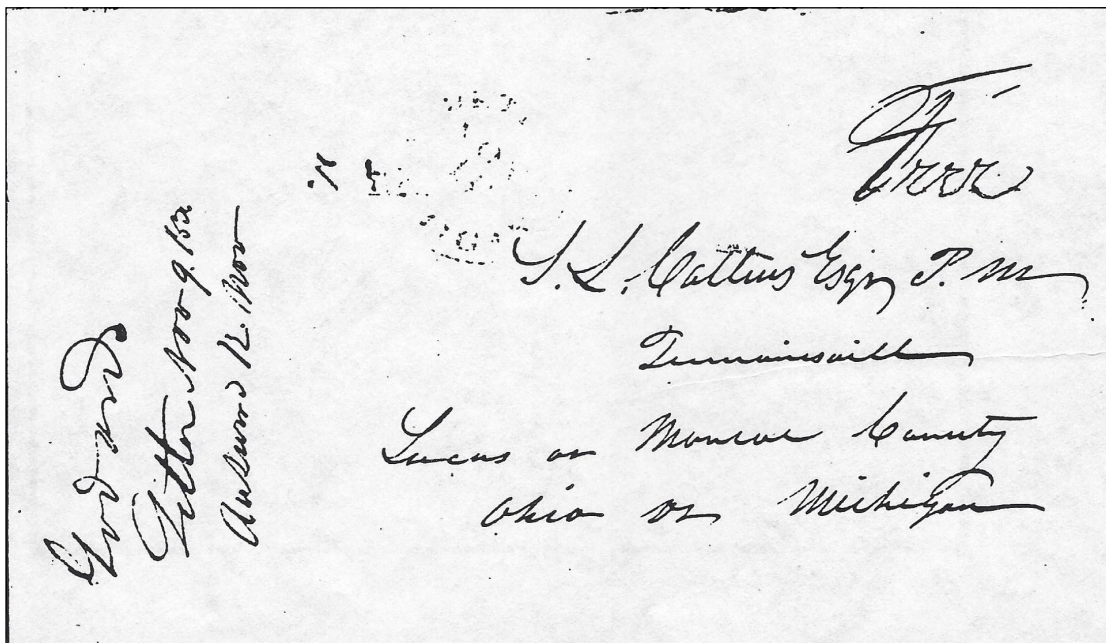 Free
S. L. Collins Esqr P. M
Tremainsvill
Lucas or Monroe County
Ohio or Michigan
Godard
Letter Nov 9
Nov